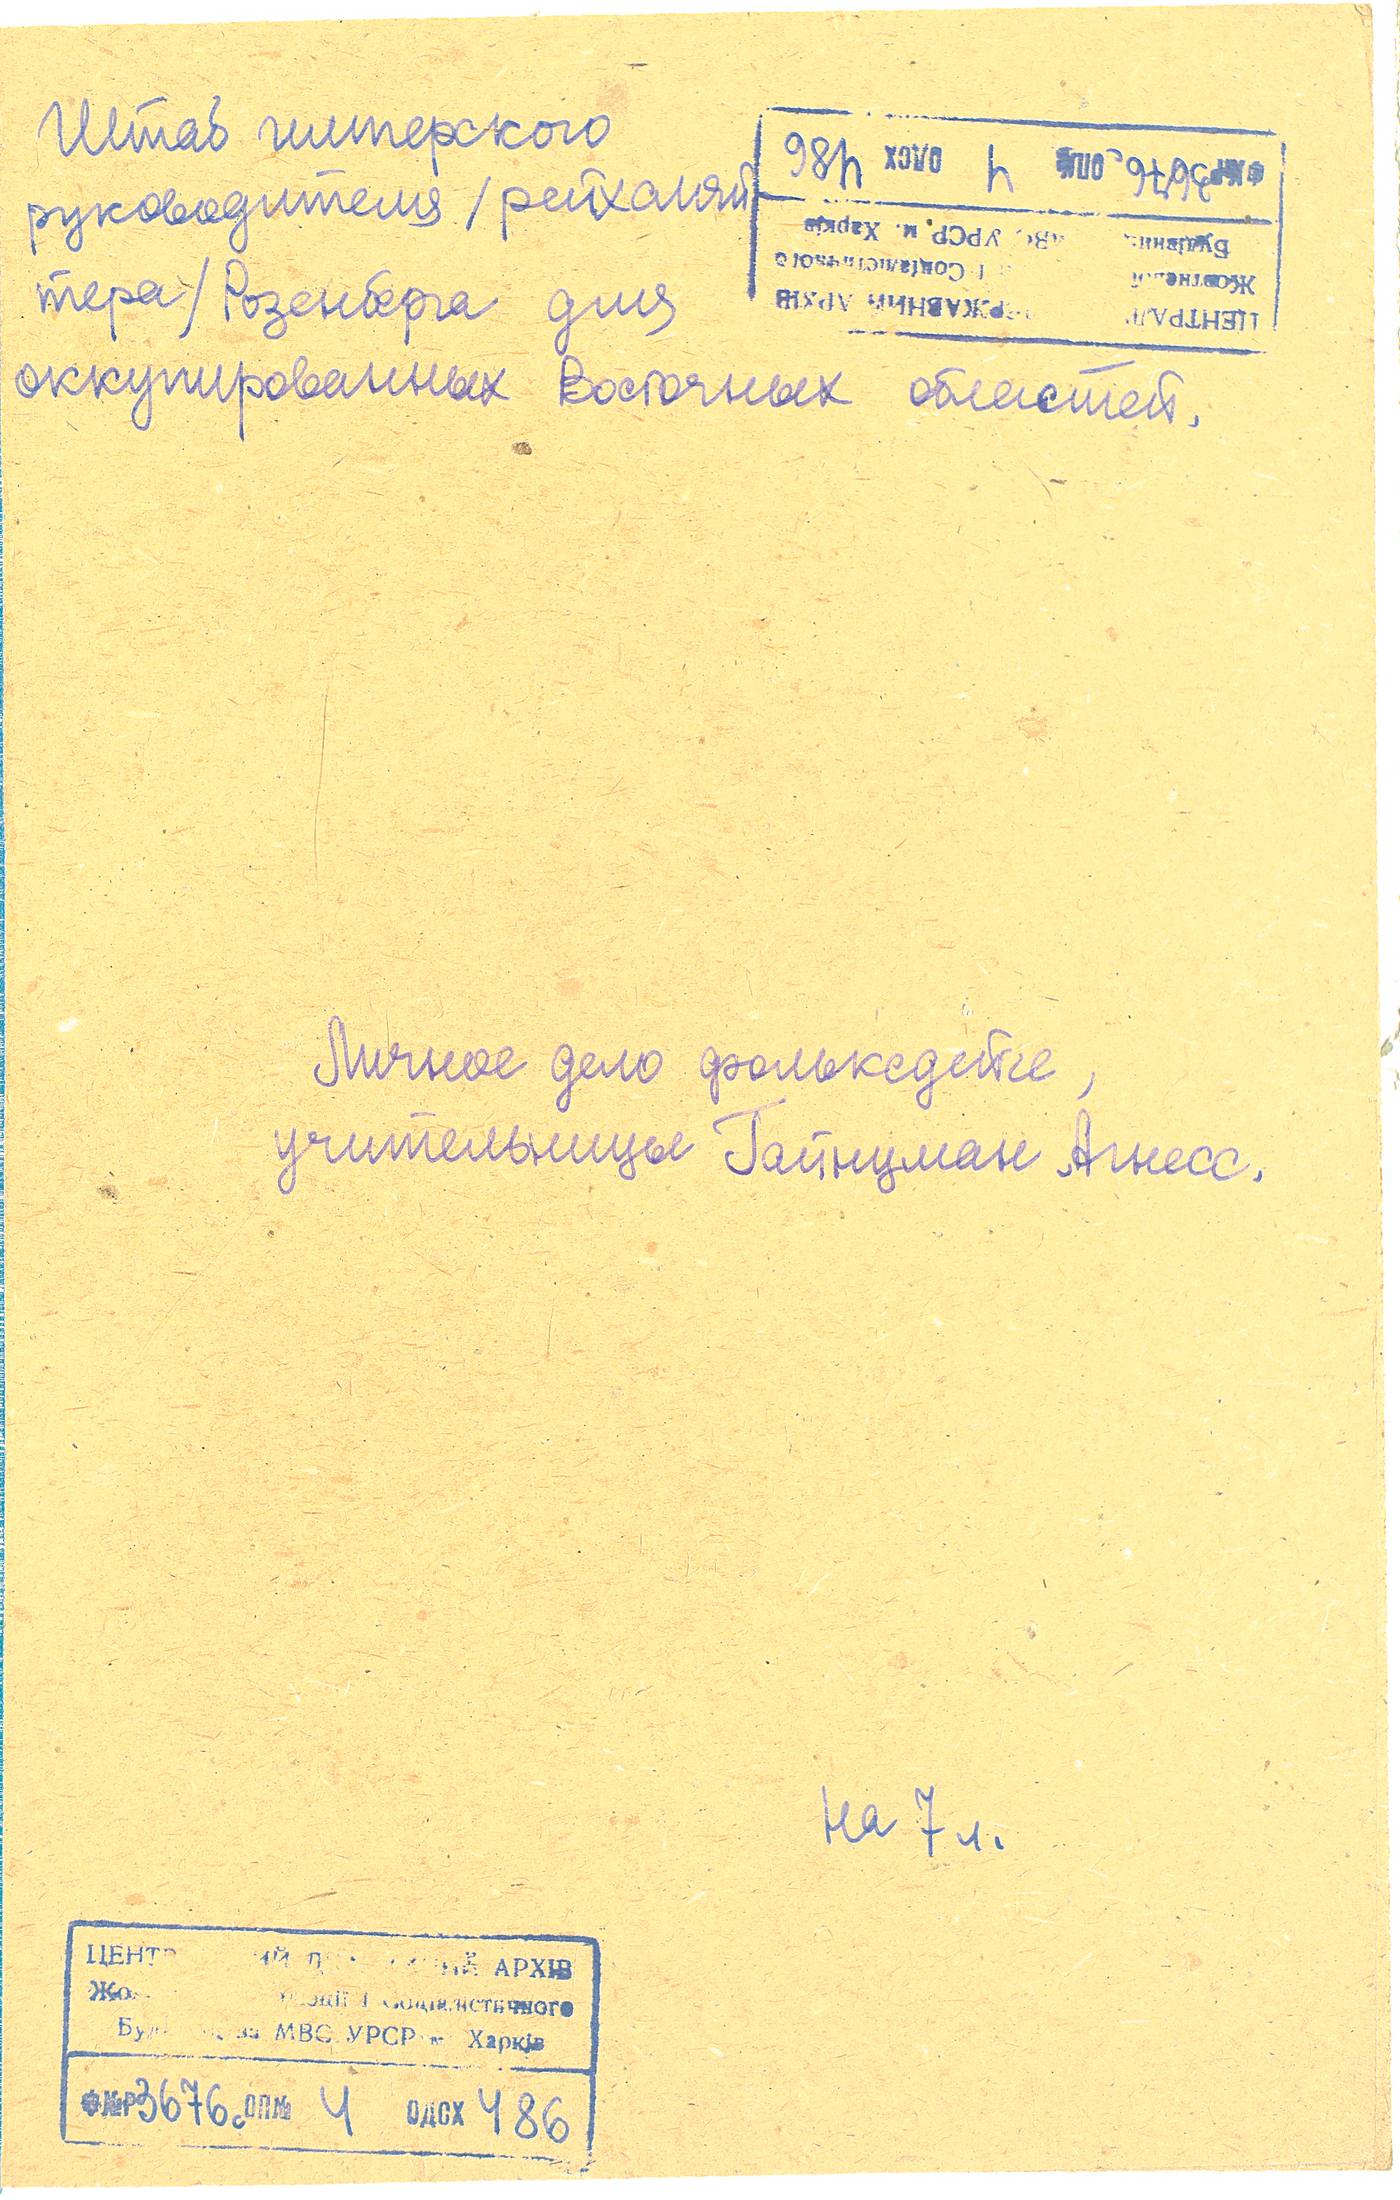 Штаб имперского
руководителя /рейхсляй
тера/ Розенберга для
оккупированных Восточных областей.
ФNР 3676с ОП№ 4 ОДСХ 486
ЦЕНТРАЛ РЖАВНИЙ АРХІВ
Жовтневої і Соціалістичного
Будівниц УРСР, м. Харків
Личное дело фольксдейче,
учительницы Гайнцман Агнесс.
на 7 л.
ЦЕНТ ИЙ АРХІВ
Жо і Соціалістичного
Буд ва МВС УРСР м Харків
Ф№Р 3676с ОП№ 4 ОДСХ 486